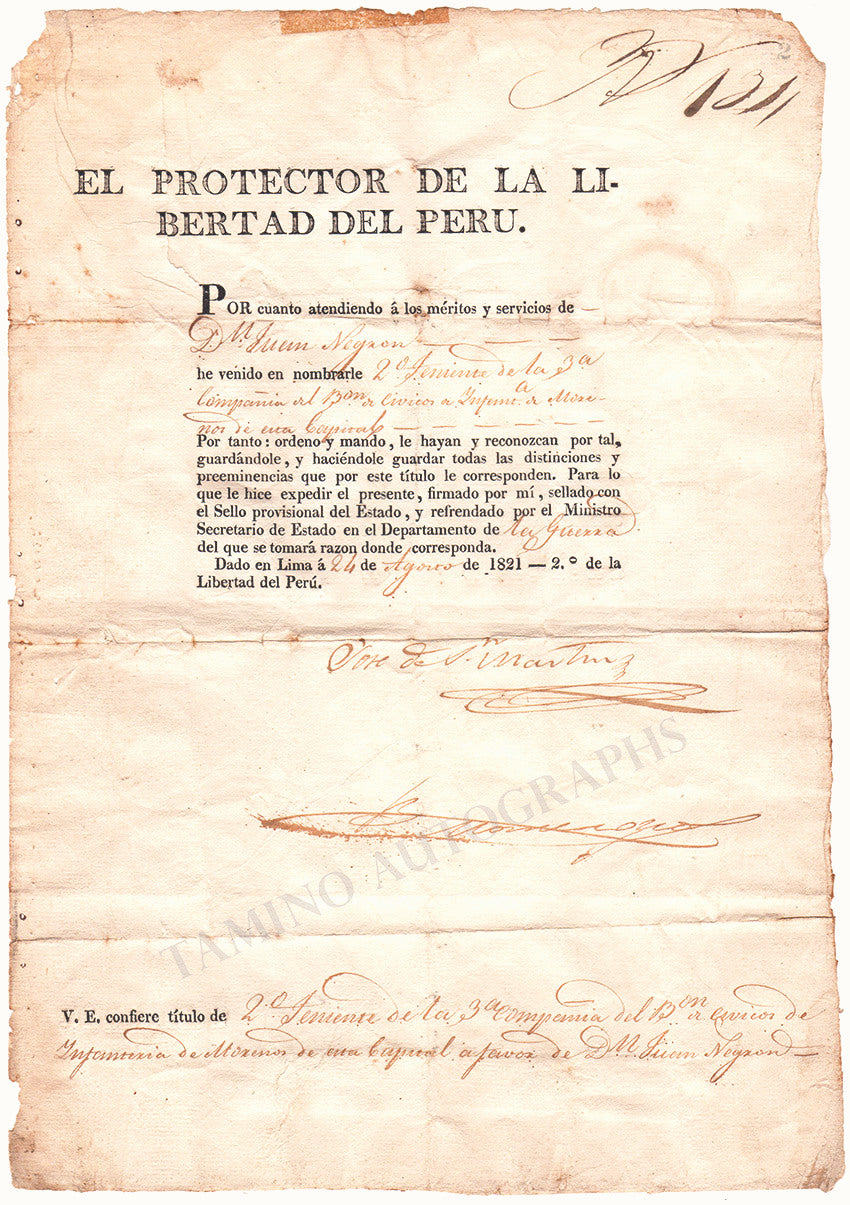 2
N 131
EL PROTECTOR DE LA LI-
BERTAD DEL PERU.
POR cuanto atendiendo á los méritos y servicios de —
D.ⁿ Juan Negron — — — —
he venido en nombrarle 2.º Teniente de la 3ª
Compañia del Bon de Civicos de Infant.ª de More-
nos de esta Capital — — — — —
Por tanto: ordeno y mando, le hayan y reconozcan por tal,
guardándole, y haciéndole guardar todas las distinciones y
preeminencias que por este título le corresponden. Para lo
que le hice expedir el presente, firmado por mí, sellado con
el Sello provisional del Estado, y refrendado por el Ministro
Secretario de Estado en el Departamento de la Guerra
del que se tomará razon donde corresponda.
Dado en Lima á 24 de Agosto de 1821 — 2.º de la
Libertad del Perú.
Jose de Sn Martin
TAMINO AUTOGRAPHS
V. E. confiere título de 2.º Teniente de la 3ª Compañia del Bon de Civicos de
Infanteria de Morenos de esta Capital a favor de D.ⁿ Juan Negron —